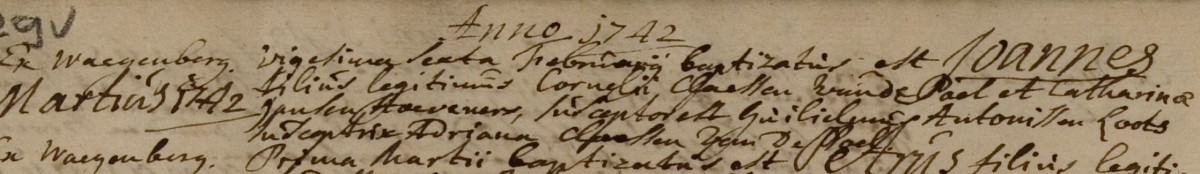 29v
Anno 1742
Ex Waegenberg. vigesima sexta Februarij baptizatus est Joannes
filius legitimus Cornelii Claessen van de Pael et Catharinæ
Martius 1742 Jansen Hoeveners, susceptor est Guilielmus Antonissen Loots
susceptrix Adriana Claessen van De Pael
Ex Waegenberg. Prima Martii baptizatus est Petrus filius legiti-